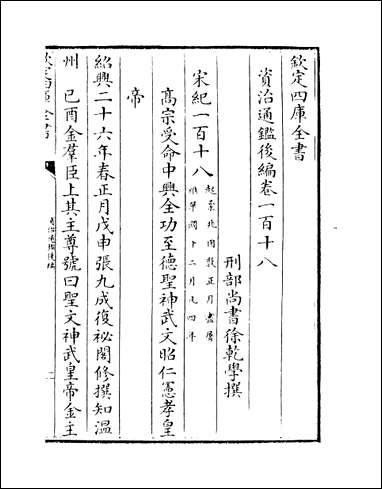 欽定四庫全書
資治通鑑後編卷一百十八
刑部尚書徐乾學撰
宋紀一百十八 起柔兆困敦正月盡屠
維單閼十二月凡四年
高宗受命中興全功至德聖神武文昭仁憲孝皇
帝
紹興二十六年春正月戊申張九成復祕閣修撰知溫
州 己酉金羣臣上其主尊號曰聖文神武皇帝金主